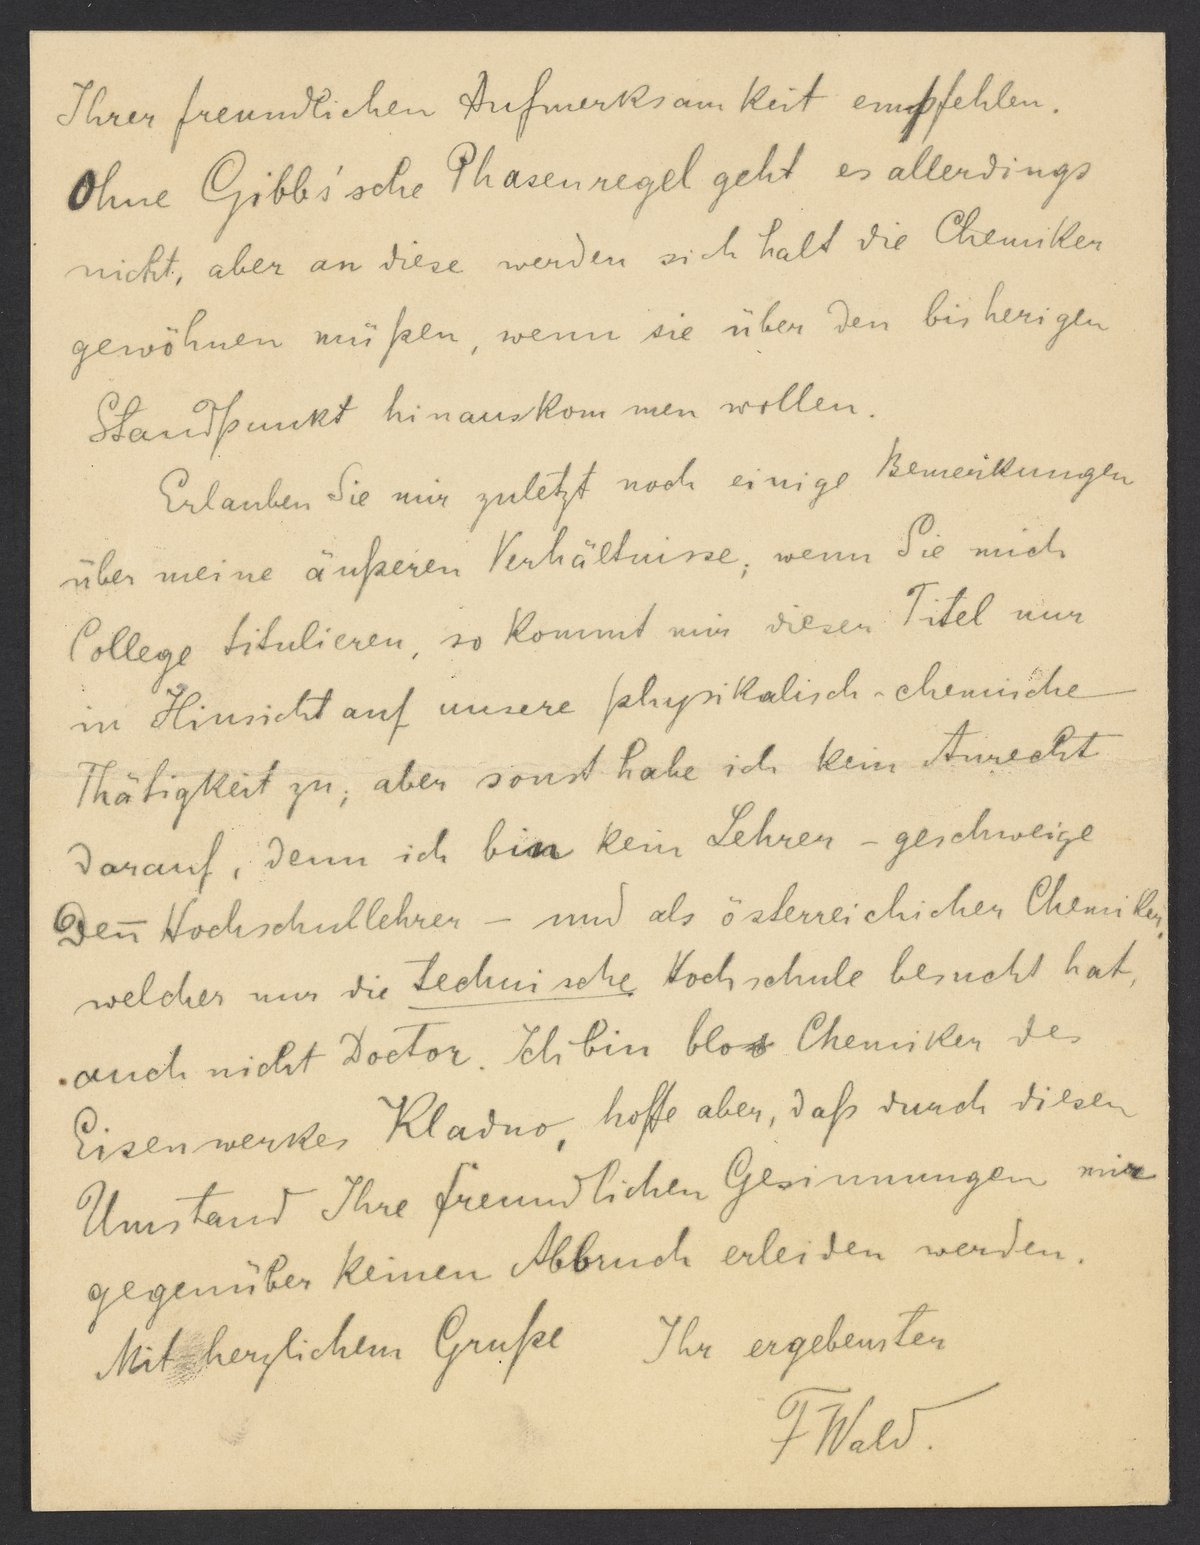 Ihrer freundlichen Aufmerksamkeit empfehlen.
Ohne Gibbs'sche Phasenregel geht es allerdings
nicht, aber an diese werden sich halt die Chemiker
gewöhnen müßen, wenn sie über den bisherigen
Standpunkt hinauskommen wollen.
Erlauben Sie mir zuletzt noch einige Bemerkungen
über meine äußeren Verhältnisse; wenn Sie mich
College titulieren, so kommt mir dieser Titel nur
in Hinsicht auf unsere physikalisch-chemische
Thätigkeit zu; aber sonst habe ich kein Anrecht
darauf, denn ich bin kein Lehrer – geschweige
den̄ Hochschullehrer – und als österreichicher Chemiker,
welcher nur die technische Hochschule besucht hat,
auch nicht Doctor. Ich bin blos Chemiker des
Eisenwerkes Kladno, hoffe aber, daß durch diesen
Umstand Ihre freundlichen Gesinnungen mir
gegenüber keinen Abbruch erleiden werden.
Mit herzlichem Gruße Ihr ergebenster
F Wald.